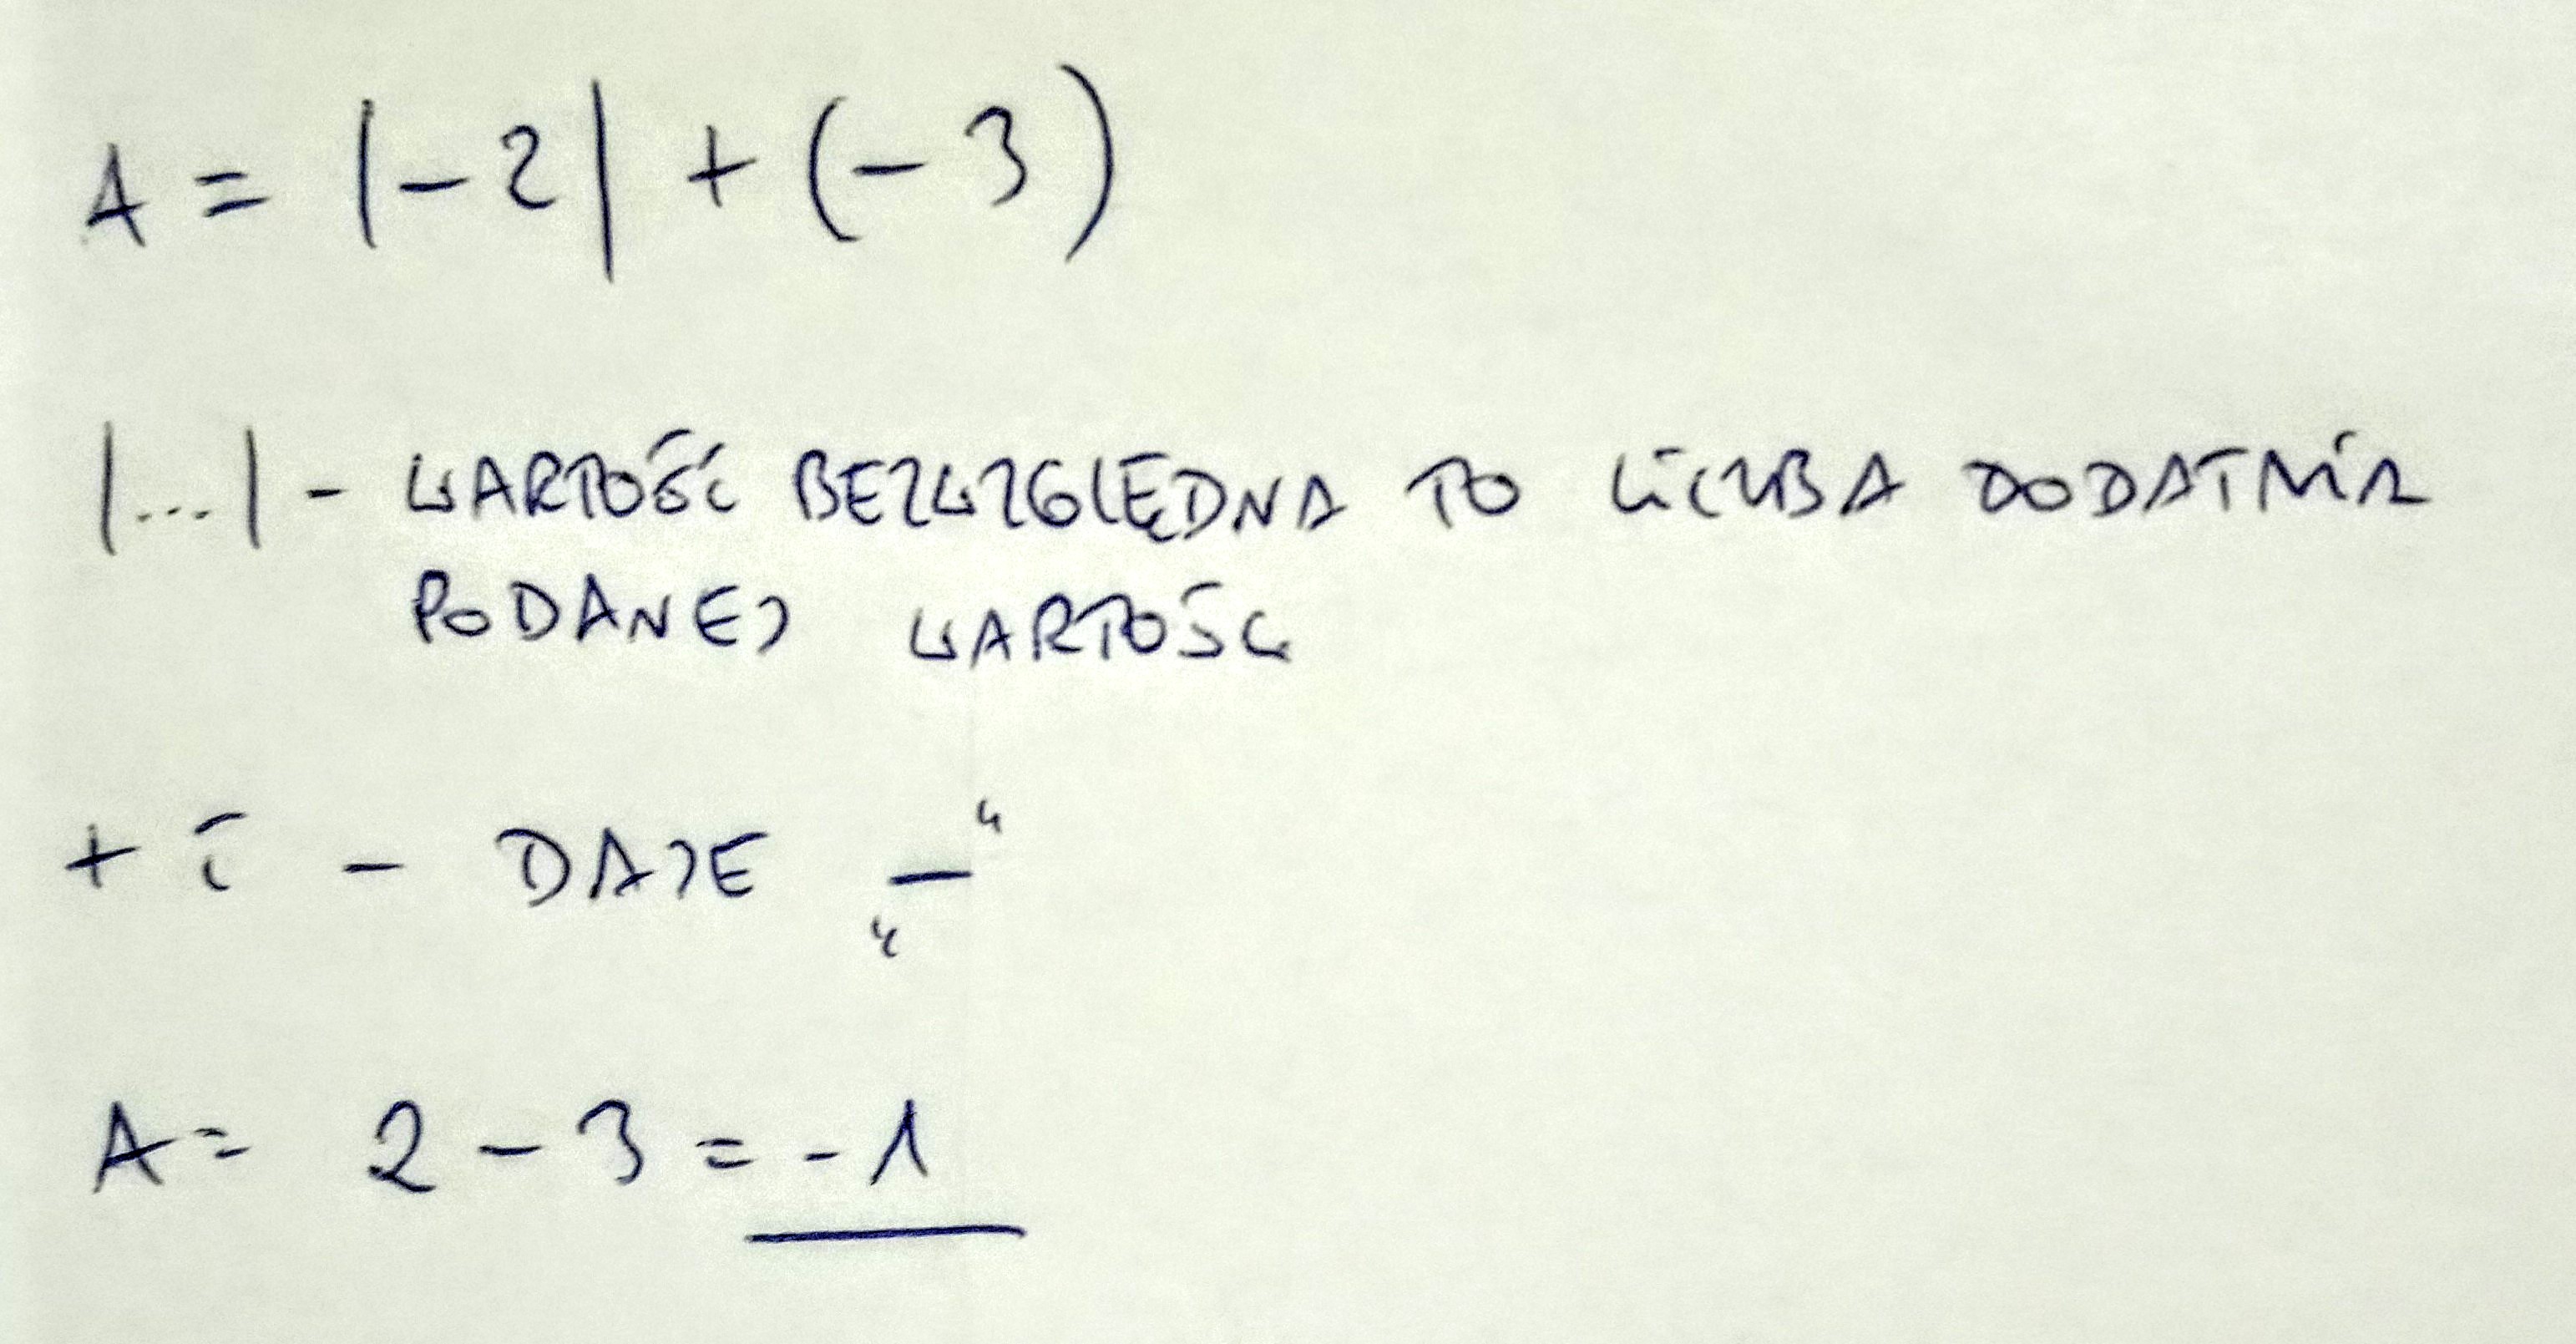 A = |-2| + (-3)
|...| - WARTOŚĆ BEZWZGLĘDNA TO LICZBA DODATNIA
PODANEJ WARTOŚCI
+ i - DAJE „-"
A = 2 - 3 = -1